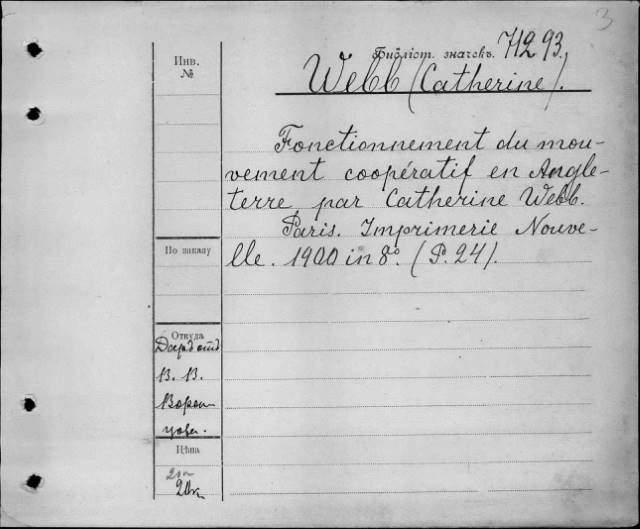 3
Библіот. значекъ. 71293.
Webb (Catherine).
Инв.
№
Fonctionnement du mou-
vement coopératif en Angle-
terre par Catherine Webb.
Paris. Imprimerie Nouve-
lle. 1900 in 8º. (P. 24).
По заказу
Откуда
В. В.
Ворон
цова.
Цѣна
20к